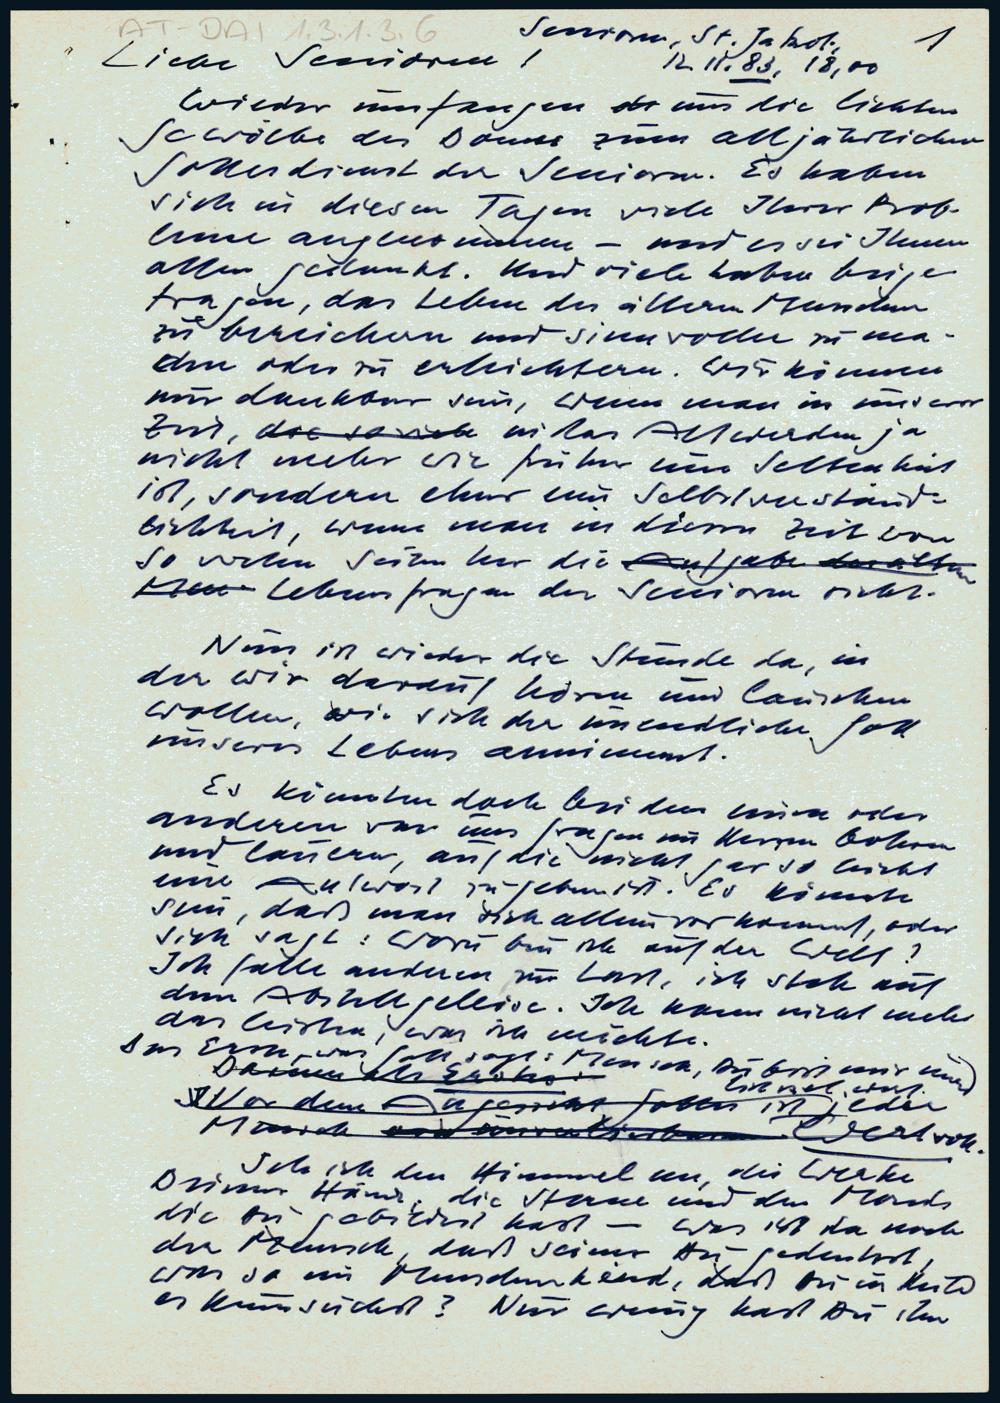 AT-DAI 1.3.1.3.6
Senioren, St. Jakob, 1
Liebe Senioren! 12.11.83, 18,00
Wieder umfangen uns die lichten
Gewölbe des Domes zum alljährlichen
Gottesdienst der Senioren. Es haben
sich in diesen Tagen viele Ihrer Prob-
leme angenommen – und es sei Ihnen
allen gedankt. Und viele haben beige-
tragen, das Leben des älteren Menschen
zu bereichern und sinnvoller zu ma-
chen oder zu erleichtern. Wir können
nur dankbar sein, wenn man in unserer
Zeit, das so viele in der das Altwerden ja
nicht mehr wie früher eine Seltenheit
ist, sondern eher eine Selbstverständ-
lichkeit, wenn man in dieser Zeit von
so vielen Seiten her die Aufgabe des alten
Men Lebensfragen der Senioren sieht.
Nun ist wieder die Stunde da, in
der wir darauf hören und lauschen
wollen, wie sich der unendliche Gott
unseres Lebens annimmt.
Es könnten doch bei dem einen oder
anderen von uns Fragen im Herzen bohren
und lauern, auf die nicht gar so leicht
eine Antwort zu geben ist. Es könnte
sein, daß man sich allein vorkommt, oder
sich sagt: Wozu bin ich auf der Welt?
Ich falle anderen zur Last, ich steh auf
dem Abstellgeleise. Ich kann nicht mehr
das leisten, was ich möchte.
Das Erste, was Gott sagt: Mensch, Du bist mir
viel wert.
Vor dem Angesicht Gottes ist jeder
Mensch wertvoll.
Seh ich den Himmel an, die Werke
Deiner Hände, die Sterne und den Mond
die Du gebildet hast – was ist da noch
der Mensch, daß seiner Du gedenkst,
was so ein Menschenkind, daß Du in Huld
es heimsuchst? Nur wenig hast Du ihn